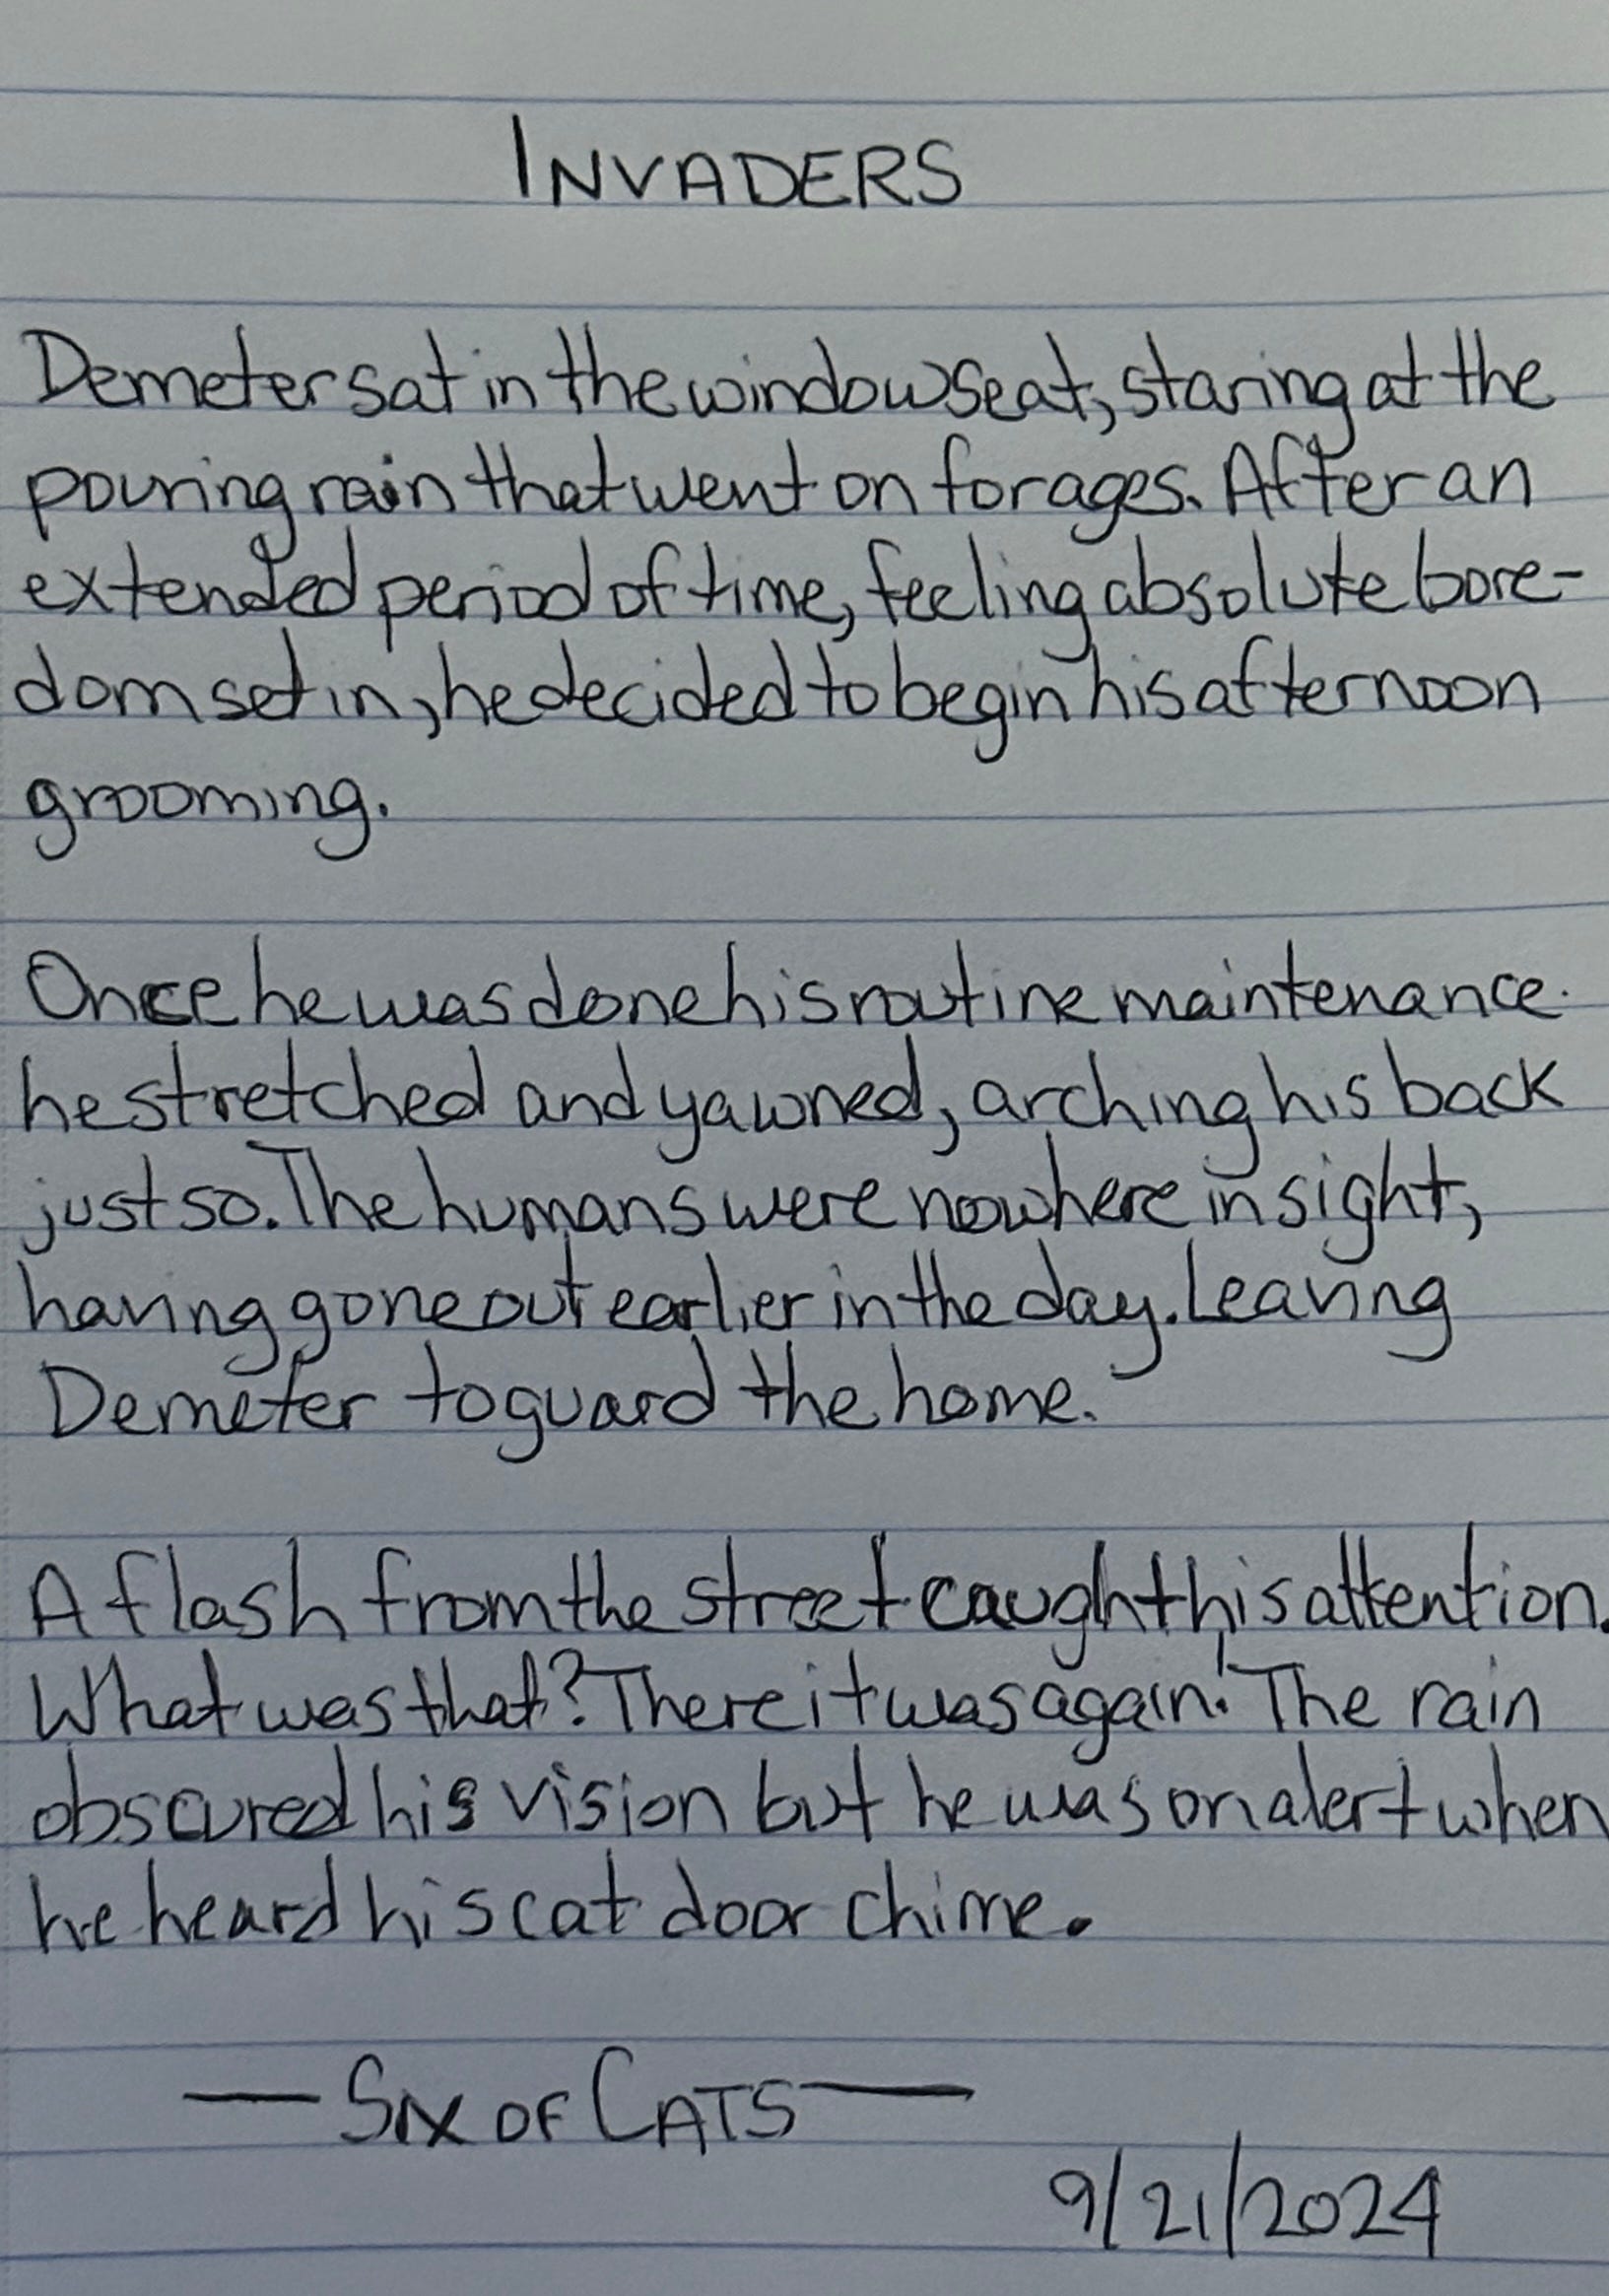 INVADERS
Demeter sat in the window seat, staring at the
pouring rain that went on for ages. After an
extended period of time, feeling absolute bore-
dom set in, he decided to begin his afternoon
grooming.
Once he was done his routine maintenance.
he stretched and yawned, arching his back
just so. The humans were nowhere in sight,
having gone out earlier in the day. Leaving
Demeter to guard the home.
A flash from the street caught his attention.
What was that? There it was again! The rain
obscured his vision but he was on alert when
he heard his cat door chime.
— SIX OF CATS —
9/21/2024